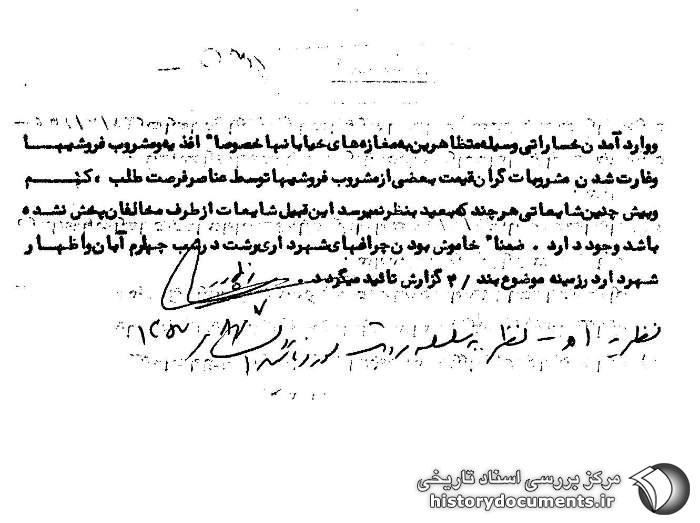 ووارد آمدن خساراتی وسیله متظاهرین به مغازه های خیابانها خصوصا" اغذیه ومشروب فروشیها
وغارت شدن مشروبات گران قیمت بعضی از مشروب فروشیها توسط عناصر فرصت طلب ، کم
وبیش چنین شایعاتی هر چند که بعید بنظر نمیرسد این قبیل شایعات از طرف مخالفان پخش نشده
باشد وجود دارد . ضمنا" خاموش بودن چراغهای شهرداری رشت در شب چهارم آبان واظهار
شهردار در زمینه موضوع بند /۴ گزارش تائید میگردد .
نظریه
نظر
مرکز بررسی اسناد تاریخی
historydocuments.ir